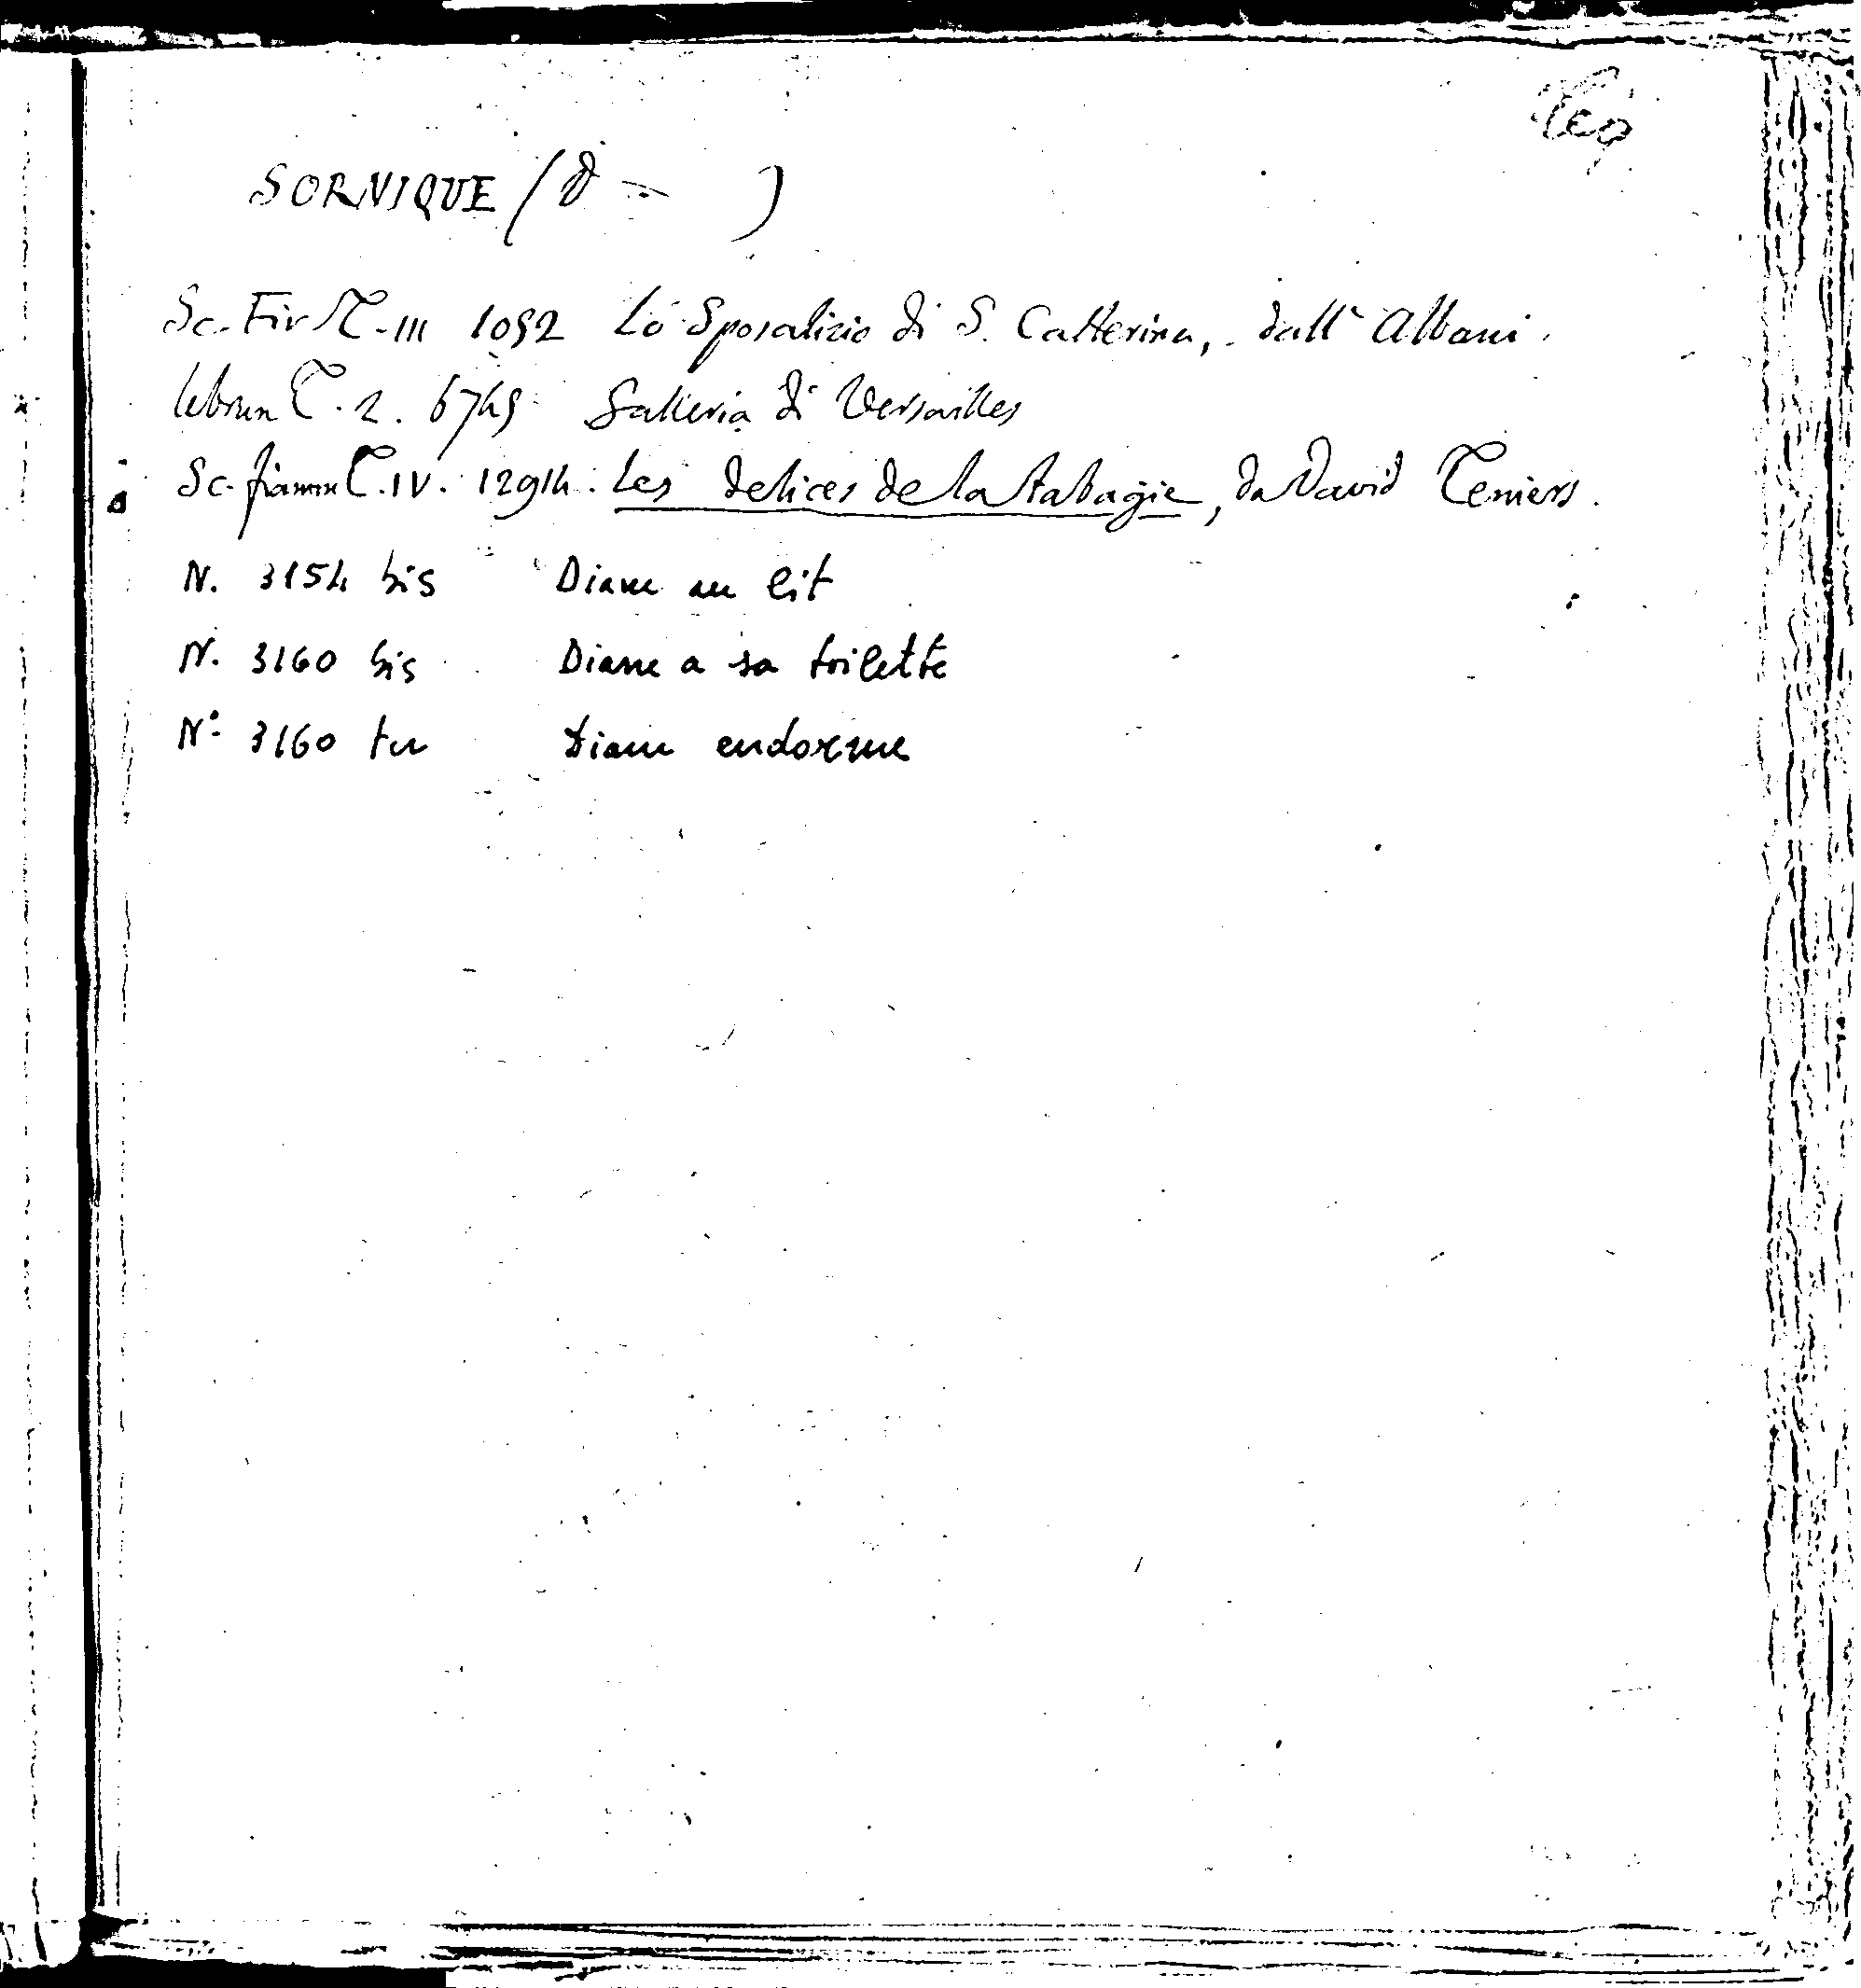 SORNIQUE (D - )
Sc. Fir T. III 1092 Lo Sposalizio di S. Catterina, dall' Albani.
lebrun T. 2. 6749 Galleria di Versailles
Sc. fiamm T. IV. 12914. Les delices de la tabagie, da David Teniers.
N. 3154 bis Diane au lit
N. 3160 bis Diane a sa toilette
N° 3160 ter Diane endorme